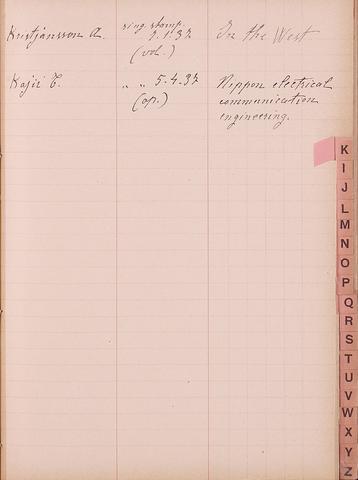 Kristjánsson A.
ring stamp.
1.1.37
(vol.)
In the West
Kajii T.
" " 5.4.37
(ap.)
Nippon electrical
communication
engineering.
K
I
J
L
M
N
O
P
Q
R
S
T
U
V
W
X
Y
Z